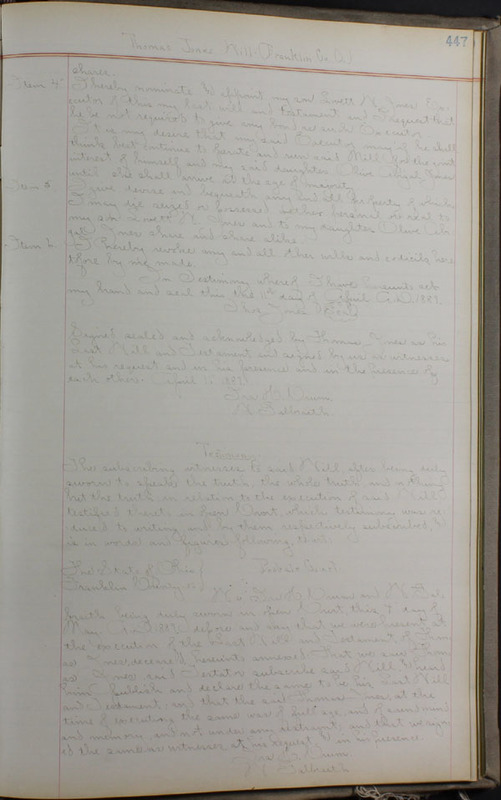 447
Thomas Jones Will (Franklin Co. O.)
shares.
Item 4" I hereby nominate & appoint my son
of this my last will and testament and request that
he be not required to give any bond as such Executor.
It is my desire that my said Executor may if he shall
think best continue to operate and run said Mill for the
interest of himself and my said daughter Olive
until she shall arrive at the age of majority
Item 5. I give devise and bequeath any and all property of
I may die seized or possessed either personal or real to
my son Jones and to my daughter Olive
Jones share and share alike.
Item 6. I hereby revoke any and all other wills and codicils here
tofore by me made.
In Testimony whereof I have hereunto set
my hand and seal this the 11th day of April A.D. 1887.
Thos. Jones
Signed sealed and acknowledged by Thomas Jones as his
Last Will and Testament and signed by us as witnesses
at his request and in his presence and in the presence of
each other. April 11, 1887.
Galbreath
Testimony.
The subscribing witnesses to said Will, after being duly
sworn to speak the truth, the whole truth and nothing
but the truth in relation to the execution of said Will
testified thereto in open Court, which testimony was re-
duced to writing and by them respectively subscribed, &
is in words and figures following, to wit:
The State of Ohio }
Franklin County ss. } Probate Court.
We and
being duly sworn in open Court this 7 day of
May A.D. 1887, depose and say that we were present at
the execution of the Last Will and Testament of Thom
as Jones, deceased, hereunto annexed. That we saw Thom
as Jones said Testator subscribe said Will & heard
him publish and declare the same to be his Last Will
and Testament, and that the said Thomas Jones, at the
time of executing the same was of full age, and of sound mind
and memory, and not under any restraint, and that we sign
ed the same as witnesses at his request & in his presence.
Galbreath